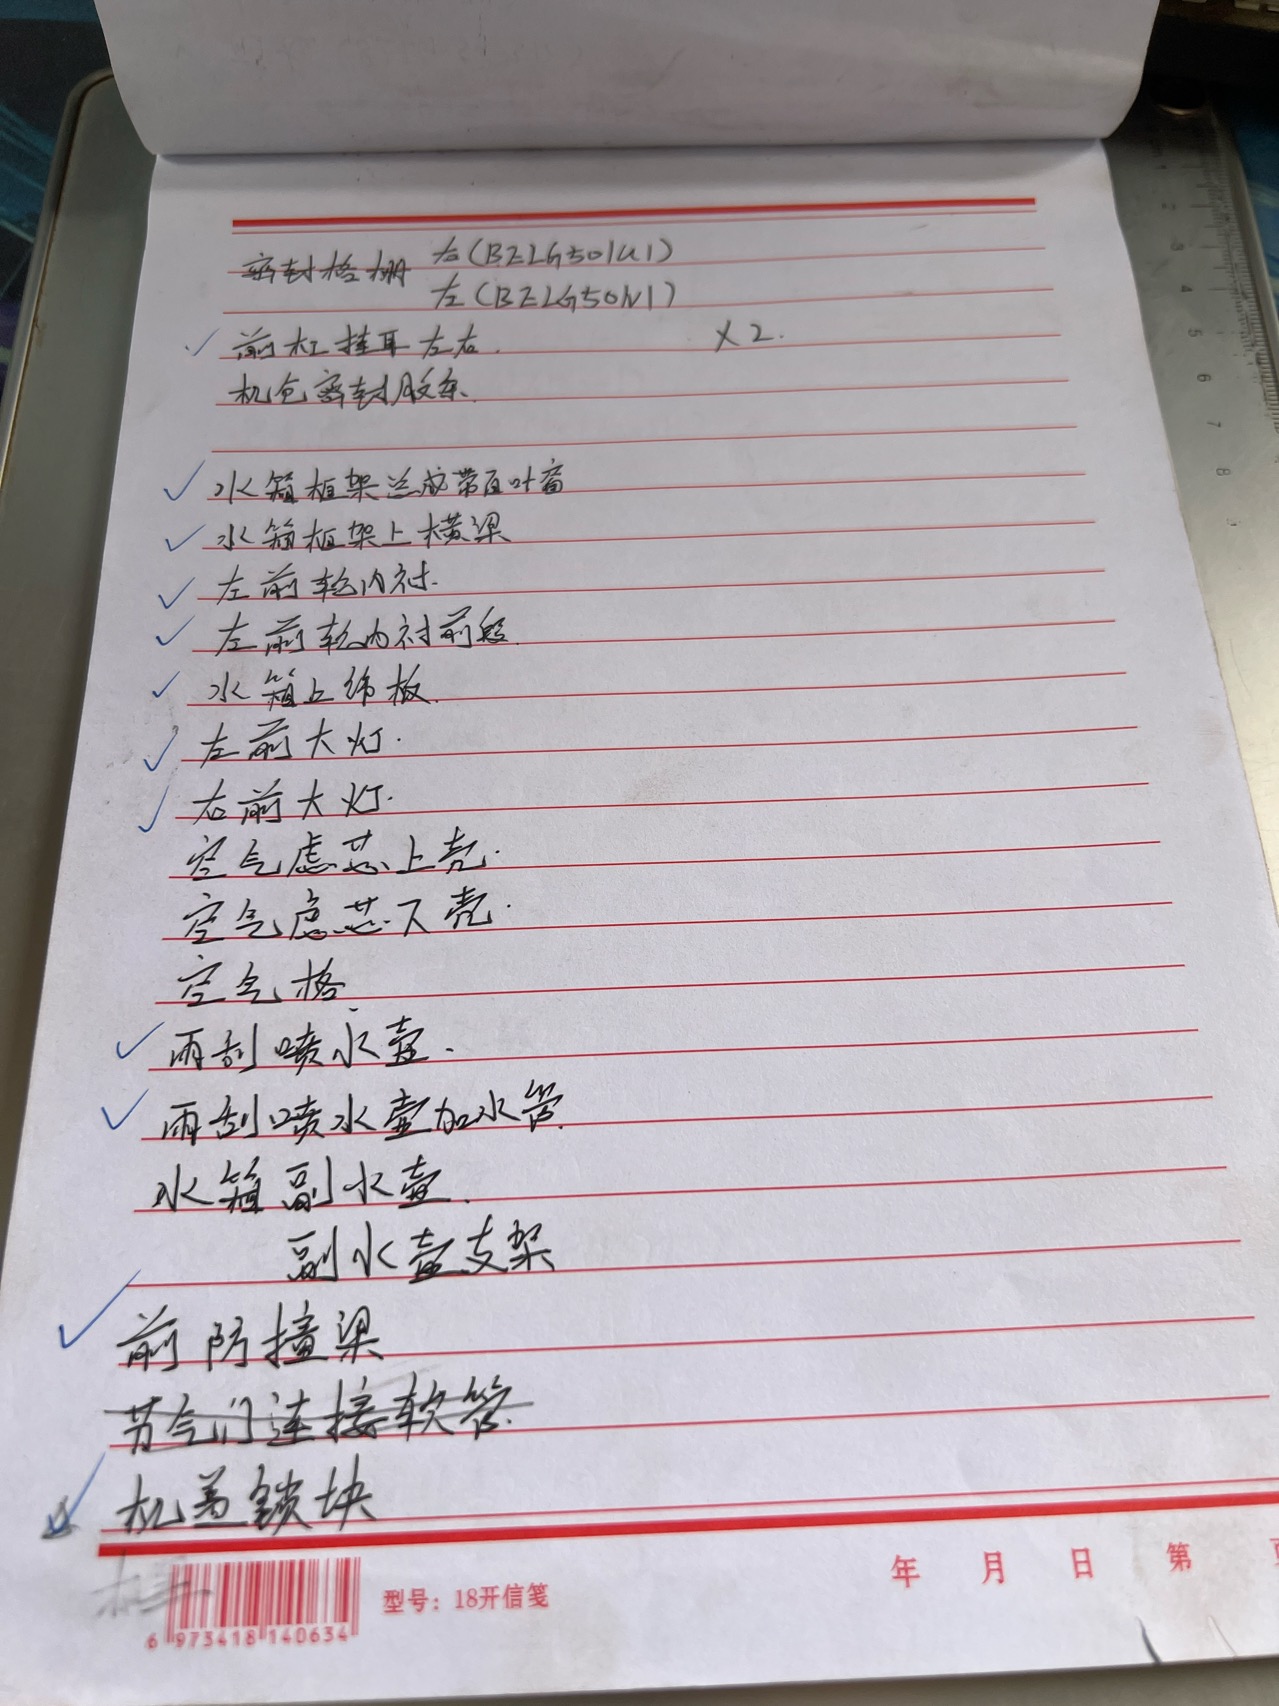 密封格栅 右(BZLG501U1)
左(BZLG50N1)
前杠挂耳左右. ×2.
机仓密封胶条.
水箱框架总成带百叶窗
水箱框架上横梁
左前轮内衬.
左前轮内衬前段.
水箱上饰板.
左前大灯.
右前大灯.
空气虑芯上壳.
空气虑芯下壳.
空气格.
雨刮喷水壶.
雨刮喷水壶加水管.
水箱副水壶.
副水壶支架
前防撞梁
节气门连接软管.
机盖锁块
年 月 日 第
型号：18开信笺
6 973418 140634